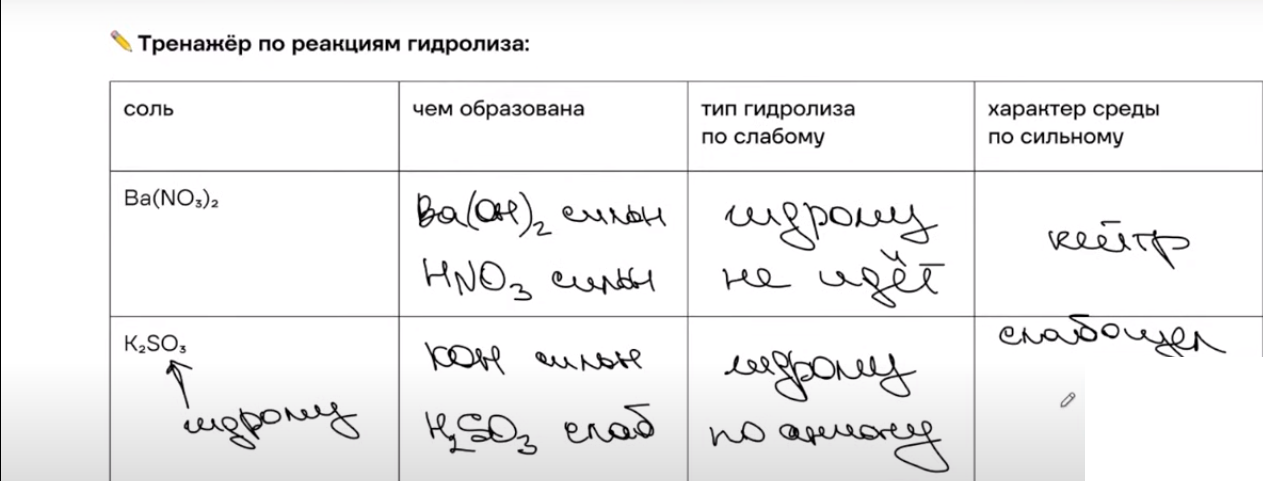 ✏️ Тренажёр по реакциям гидролиза:
соль
чем образована
тип гидролиза
по слабому
характер среды
по сильному
Ba(NO₃)₂
Ba(OH)₂ сильн
HNO₃ сильн
гидролиз
не идёт
нейтр
K₂SO₃
гидролиз
KOH сильн
H₂SO₃ слаб
гидролиз
по аниону
слабощел